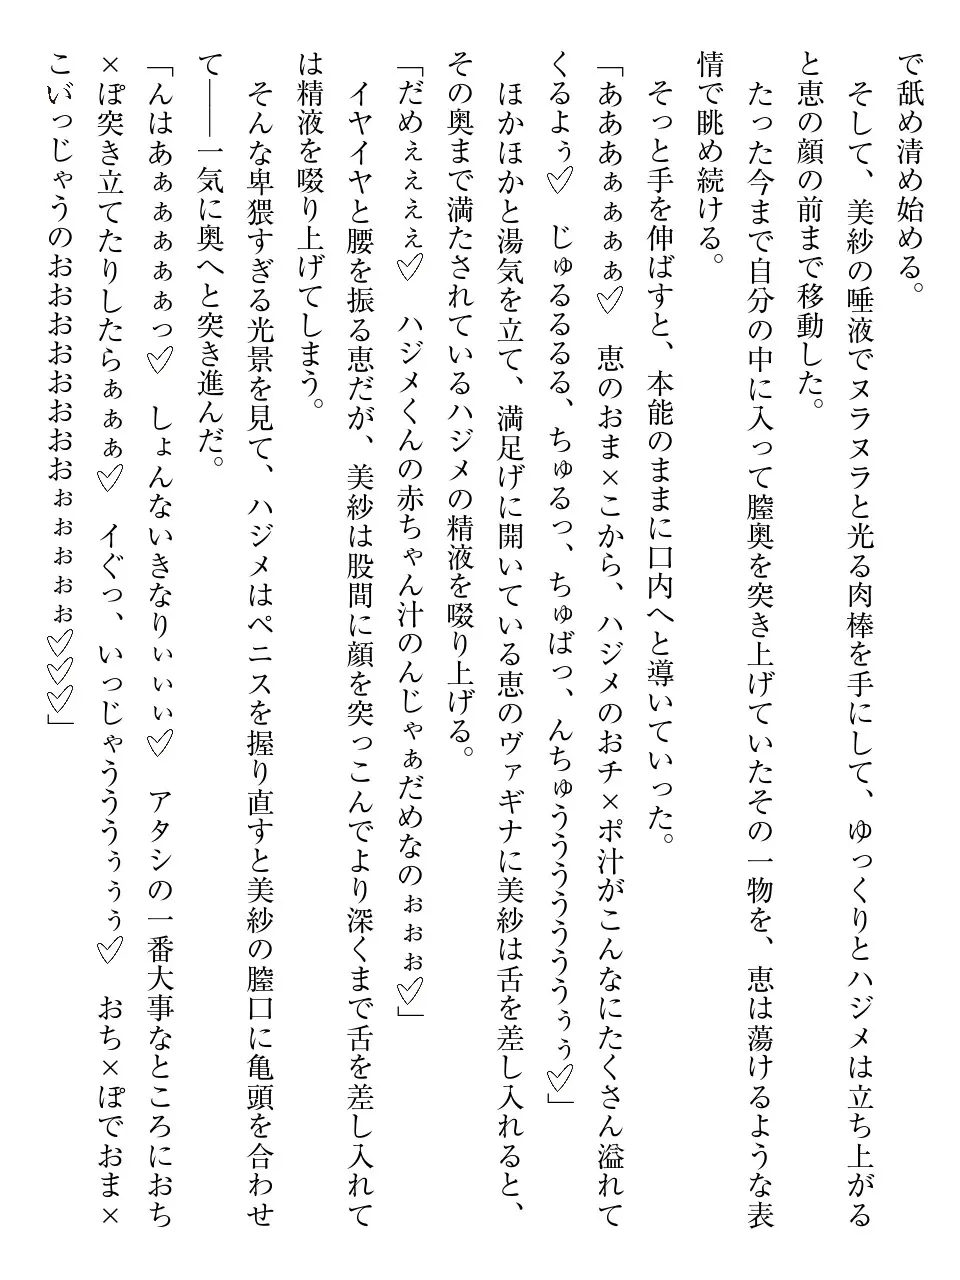 で舐め清め始める。
　そして、美紗の唾液でヌラヌラと光る肉棒を手にして、ゆっくりとハジメは立ち上がる
と恵の顔の前まで移動した。
　たった今まで自分の中に入って膣奥を突き上げていたその一物を、恵は蕩けるような表
情で眺め続ける。
　そっと手を伸ばすと、本能のままに口内へと導いていった。
「あああぁぁぁぁ♡　恵のおま×こから、ハジメのおチ×ポ汁がこんなにたくさん溢れて
くるよぅ♡　じゅるるるる、ちゅるっ、ちゅばっ、んちゅううううううぅぅ♡」
　ほかほかと湯気を立て、満足げに開いている恵のヴァギナに美紗は舌を差し入れると、
その奥まで満たされているハジメの精液を啜り上げる。
「だめぇぇぇぇ♡　ハジメくんの赤ちゃん汁のんじゃぁだめなのぉぉぉ♡」
　イヤイヤと腰を振る恵だが、美紗は股間に顔を突っこんでより深くまで舌を差し入れて
は精液を啜り上げてしまう。
　そんな卑猥すぎる光景を見て、ハジメはペニスを握り直すと美紗の膣口に亀頭を合わせ
て――一気に奥へと突き進んだ。
「んはあぁぁぁぁぁっ♡　しょんないきなりぃぃぃ♡　アタシの一番大事なところにおち
×ぽ突き立てたりしたらぁぁぁ♡　イぐっ、いっじゃうううぅぅぅ♡　おち×ぽでおま×
こい゙っじゃうのおおおおおおおおぉぉぉぉぉ♡♡♡」